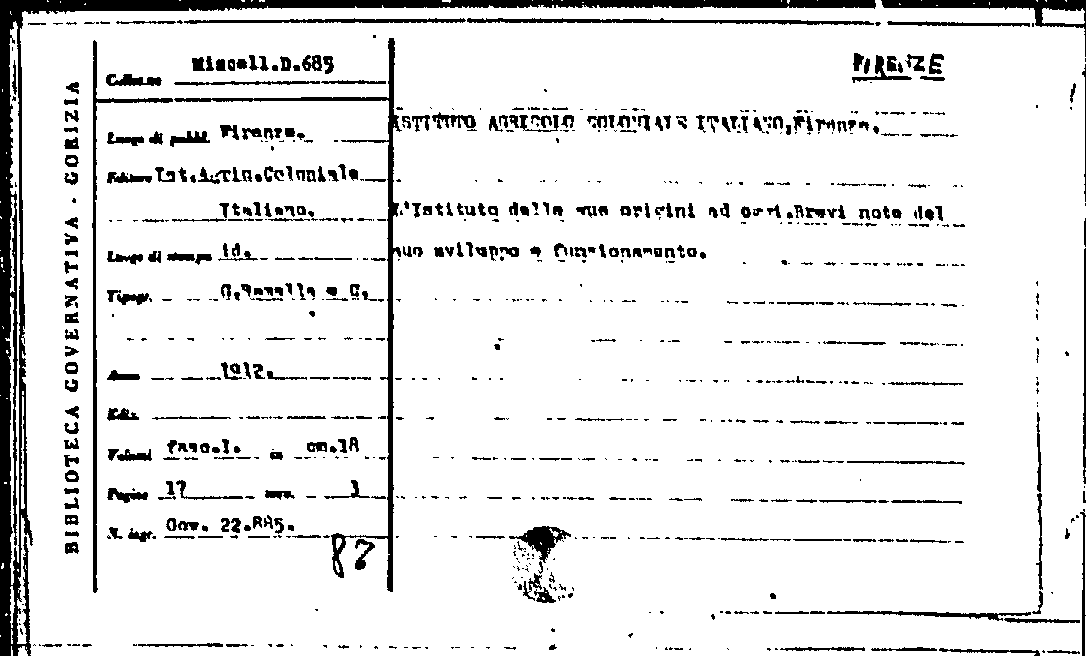 BIBLIOTECA GOVERNATIVA - GORIZIA
FIRENZE
Collocaz. Miscell.D.685
Luogo di pubbl. Firenze.
Editore Ist.Agric.Coloniale
Italiano.
Luogo di stampa id.
Tipogr. G.Ramella e C.
Anno 1912.
Ediz.
Volumi fasc.I. in cm.18
Pagine 17 3
N. ingr. Gov. 22.885.
87
ISTITUTO AGRICOLO COLONIALE ITALIANO,Firenze.
L'Istituto dalle sue origini ad oggi.Brevi note del
suo sviluppo e funzionamento.